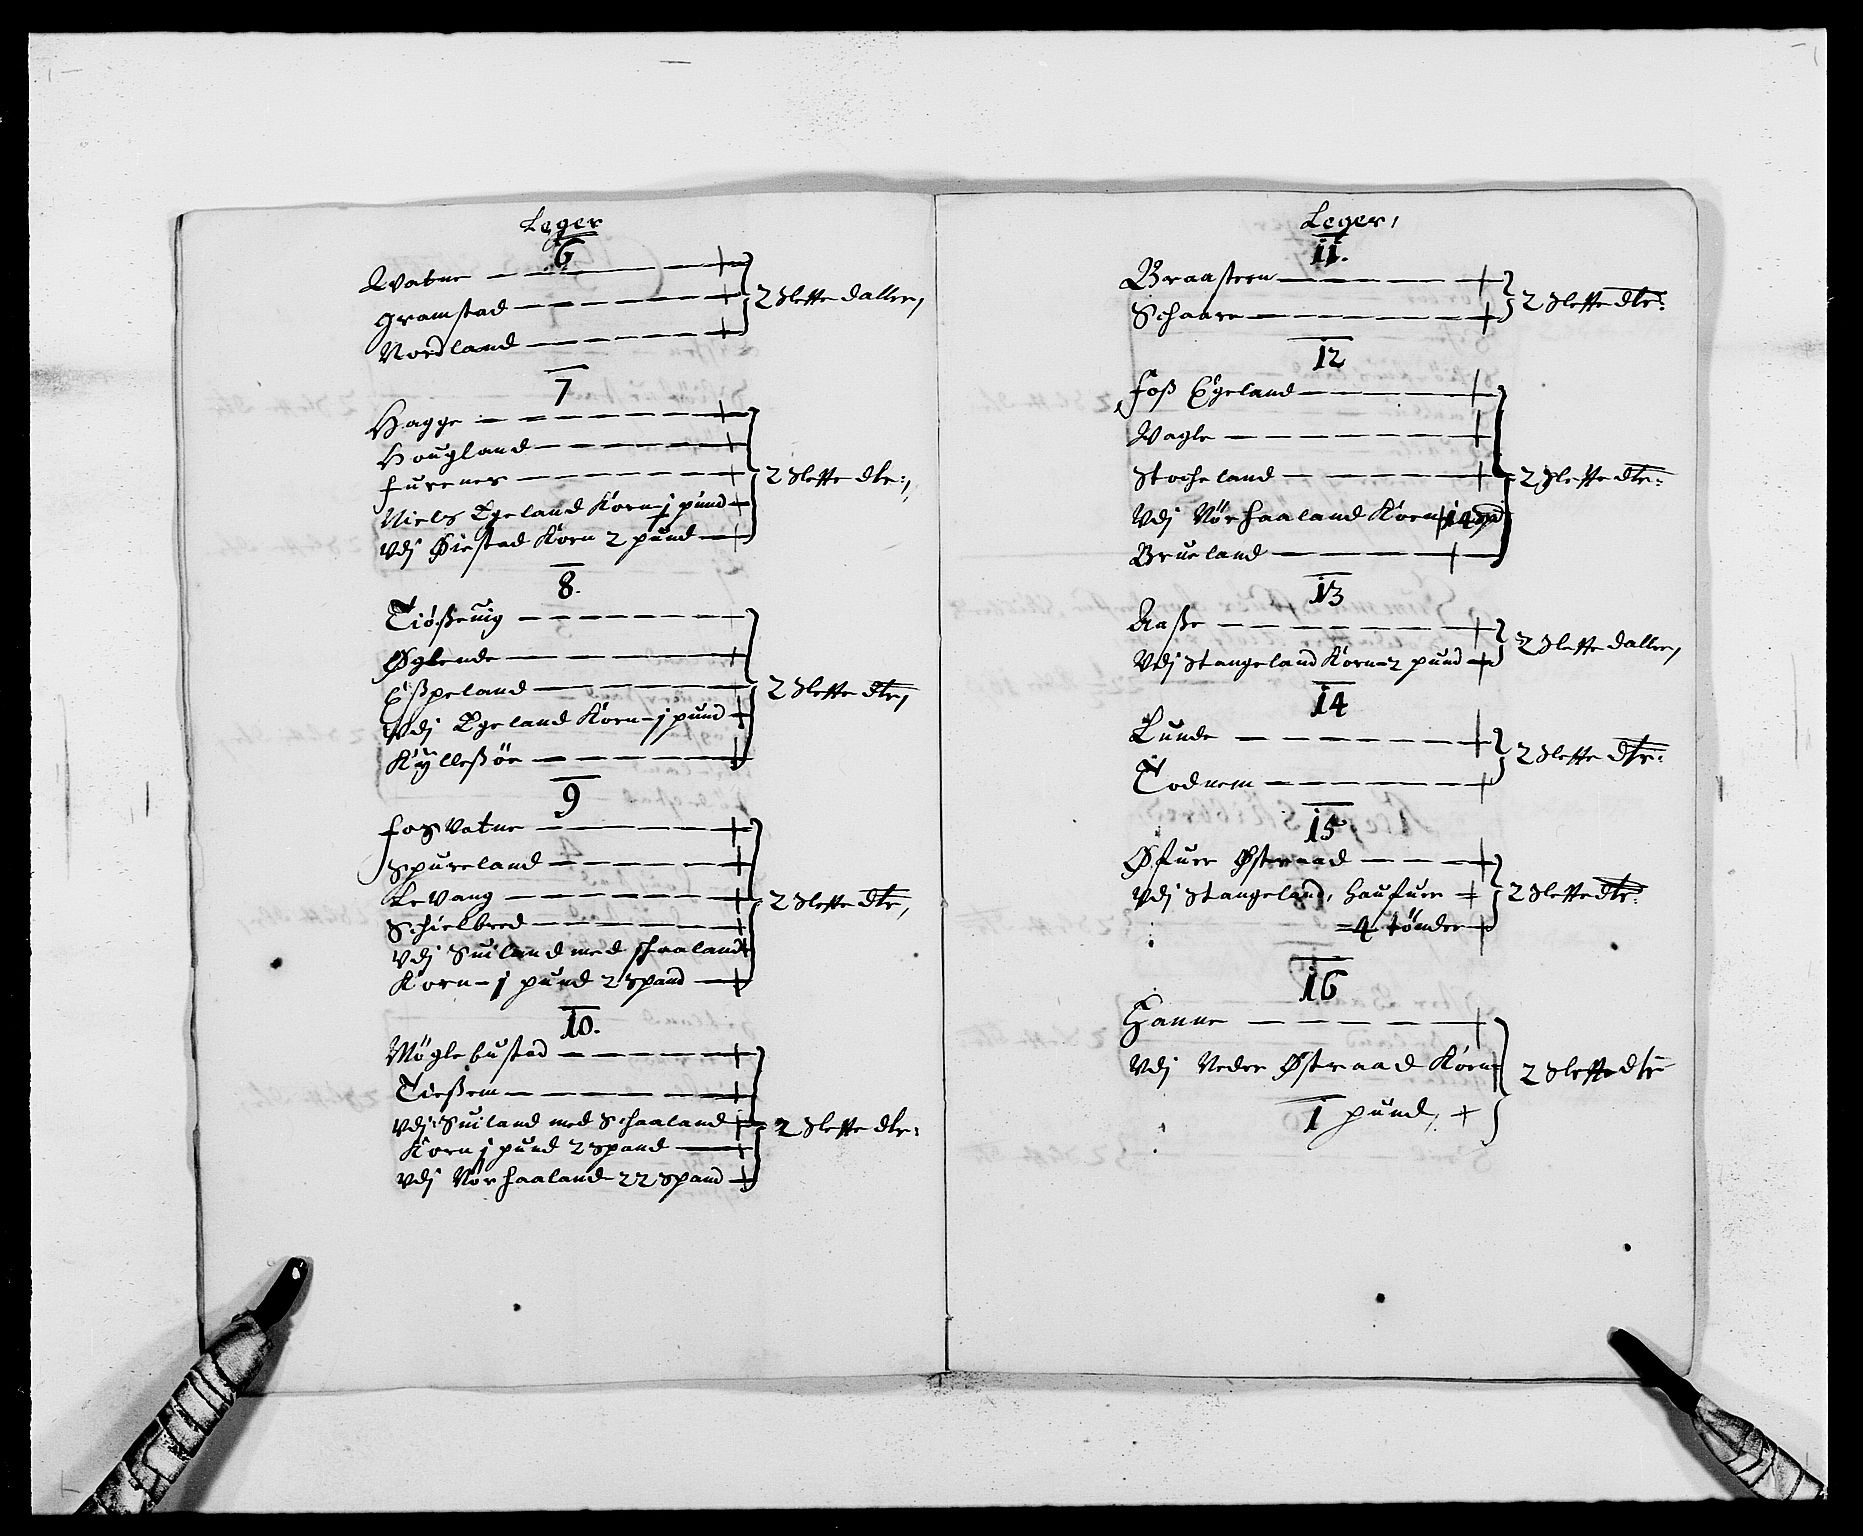 Leger
6
Watne
Gramstad
Nordland
2 Slette daller,
7
Hagge
Hougland
Furenes
Niels Egeland Korn - j pund
Vdj Øiestad Korn 2 pund
2 Slette dlr:,
8.
Tiößeuig
Øglende
Eßpeland
Vdj Egeland Korn - j pund
Kylleßöe
2 Slette dlr,
9
Fosvatne
Spureland
Levang
Schielbred
Vdj Suiland med Schaaland
Korn - j pund 2 Spand
2 Slette dlr,
10.
Möglebustad
Tießem
Vdj Suiland med Schaaland
Korn j pund 2 Spand
Vdj Nørhaaland 22 Spand
2 Slette dlr:
Leger,
11.
Braasteen
Schaare
2 Slette dlr:
12
Foß Egeland
Wagle
Stocheland
Vdj Nörhaaland Korn
Brueland
2 Slette dlr:
13
Aaße
Vdj Stangeland Korn 2 pund
2 Slette daller,
14
Lunde
Todnem
2 Slette dlr:
15
Øfuer Østraad
Vdj Stangeland, haufuer
4 tönder
2 Slette dlr:
16
Hanne
Vdj Neder Østraad Korn
1 pund,
2 Slette dlr